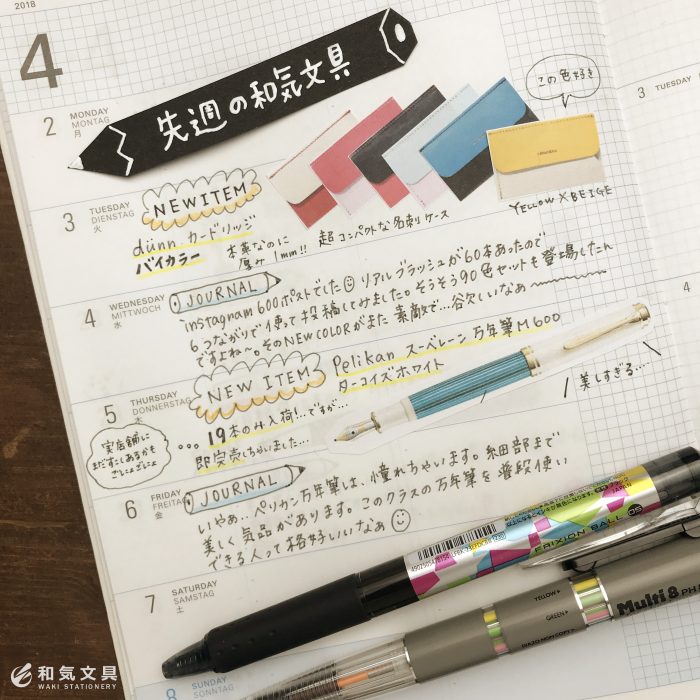 2018
4
先週の和気文具
この色好き
YELLOW×BEIGE
2
MONDAY
MONTAG
月
3
TUESDAY
DIENSTAG
火
NEW ITEM
dünn カードリッジ
バイカラー
本革なのに
厚み1mm!!
超コンパクトな名刺ケース
4
WEDNESDAY
MITTWOCH
水
JOURNAL
instagram 600ポストでした リアルブラッシュが60本あったので
6つながりで使って投稿してみました。そうそう90色セットも登場したん
ですよね〜。そのNEW COLORがまた素敵で…欲しいなあ
5
THURSDAY
DONNERSTAG
木
NEW ITEM
Pelikan スーベレーン 万年筆M600
ターコイズホワイト
美しすぎる…
…19本のみ入荷!…ですが…
即完売しちゃいました…
実店舗に
まだすこしあるかも
ごにょごにょ
6
FRIDAY
FREITAG
金
JOURNAL
いやぁ…ペリカン万年筆は、憧れちゃいます。細部まで
美しく気品があります。このクラスの万年筆を普段使い
できる人って格好いいなあ
7
SATURDAY
SAMSTAG
土
8
SUNDAY
SONNTAG
3
TUESDAY
4
JAPAN
FRIXION BALL 05
YELLOW
GREEN
DIAZO NON COPY
Multi 8
和気文具
WAKI STATIONERY